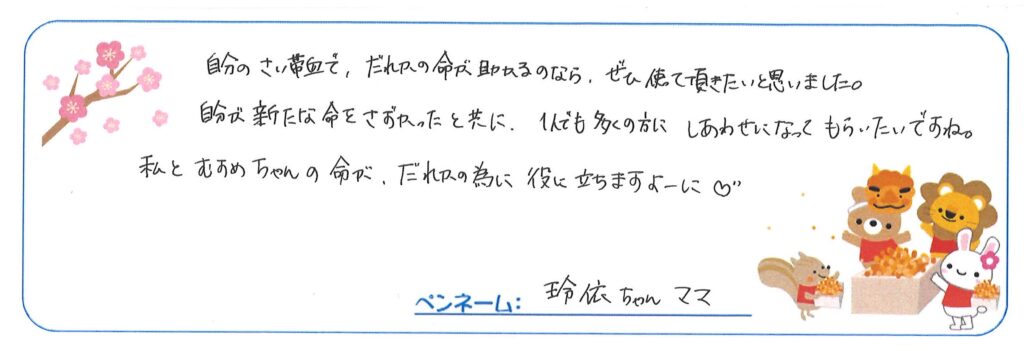 自分のさい帯血で、だれかの命が助かるのなら、ぜひ使て頂きたいと思いました。
自分が新たな命をさずかったと共に、1人でも多くの方にしあわせになってもらいたいですね。
私とむすめちゃんの命が、だれかの為に役に立ちますよーに♡"
ペンネーム: 玲依ちゃんママ